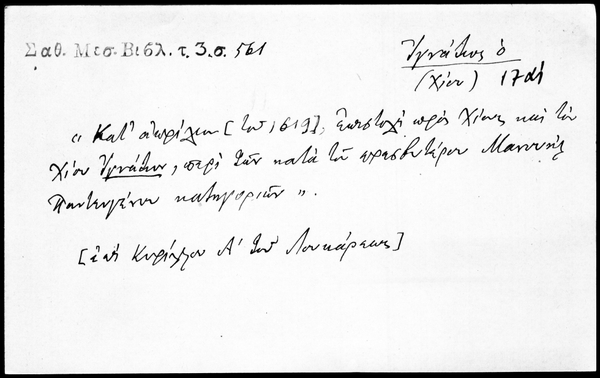 Σαθ. Μεσ. Βιβλ. τ. 3. σ. 561
Ἰγνάτιος ὁ
(Χίου) 17αι
« Κατ' ἀπρίλιον [τοῦ 1619], Ἐπιστολὴ πρὸς Χίους καὶ τὸν
Χίου Ἰγνάτιον, περὶ τῶν κατὰ τοῦ πρεσβυτέρου Μανουὴλ
Παντευγένου κατηγοριῶν ».
[ἐπὶ Κυρίλλου Α' τοῦ Λουκάρεως]